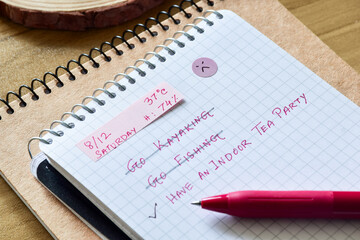 8/12 37°C
SATURDAY H: 74%
GO KAYAKING
GO FISHING
✓ HAVE AN INDOOR TEA PARTY